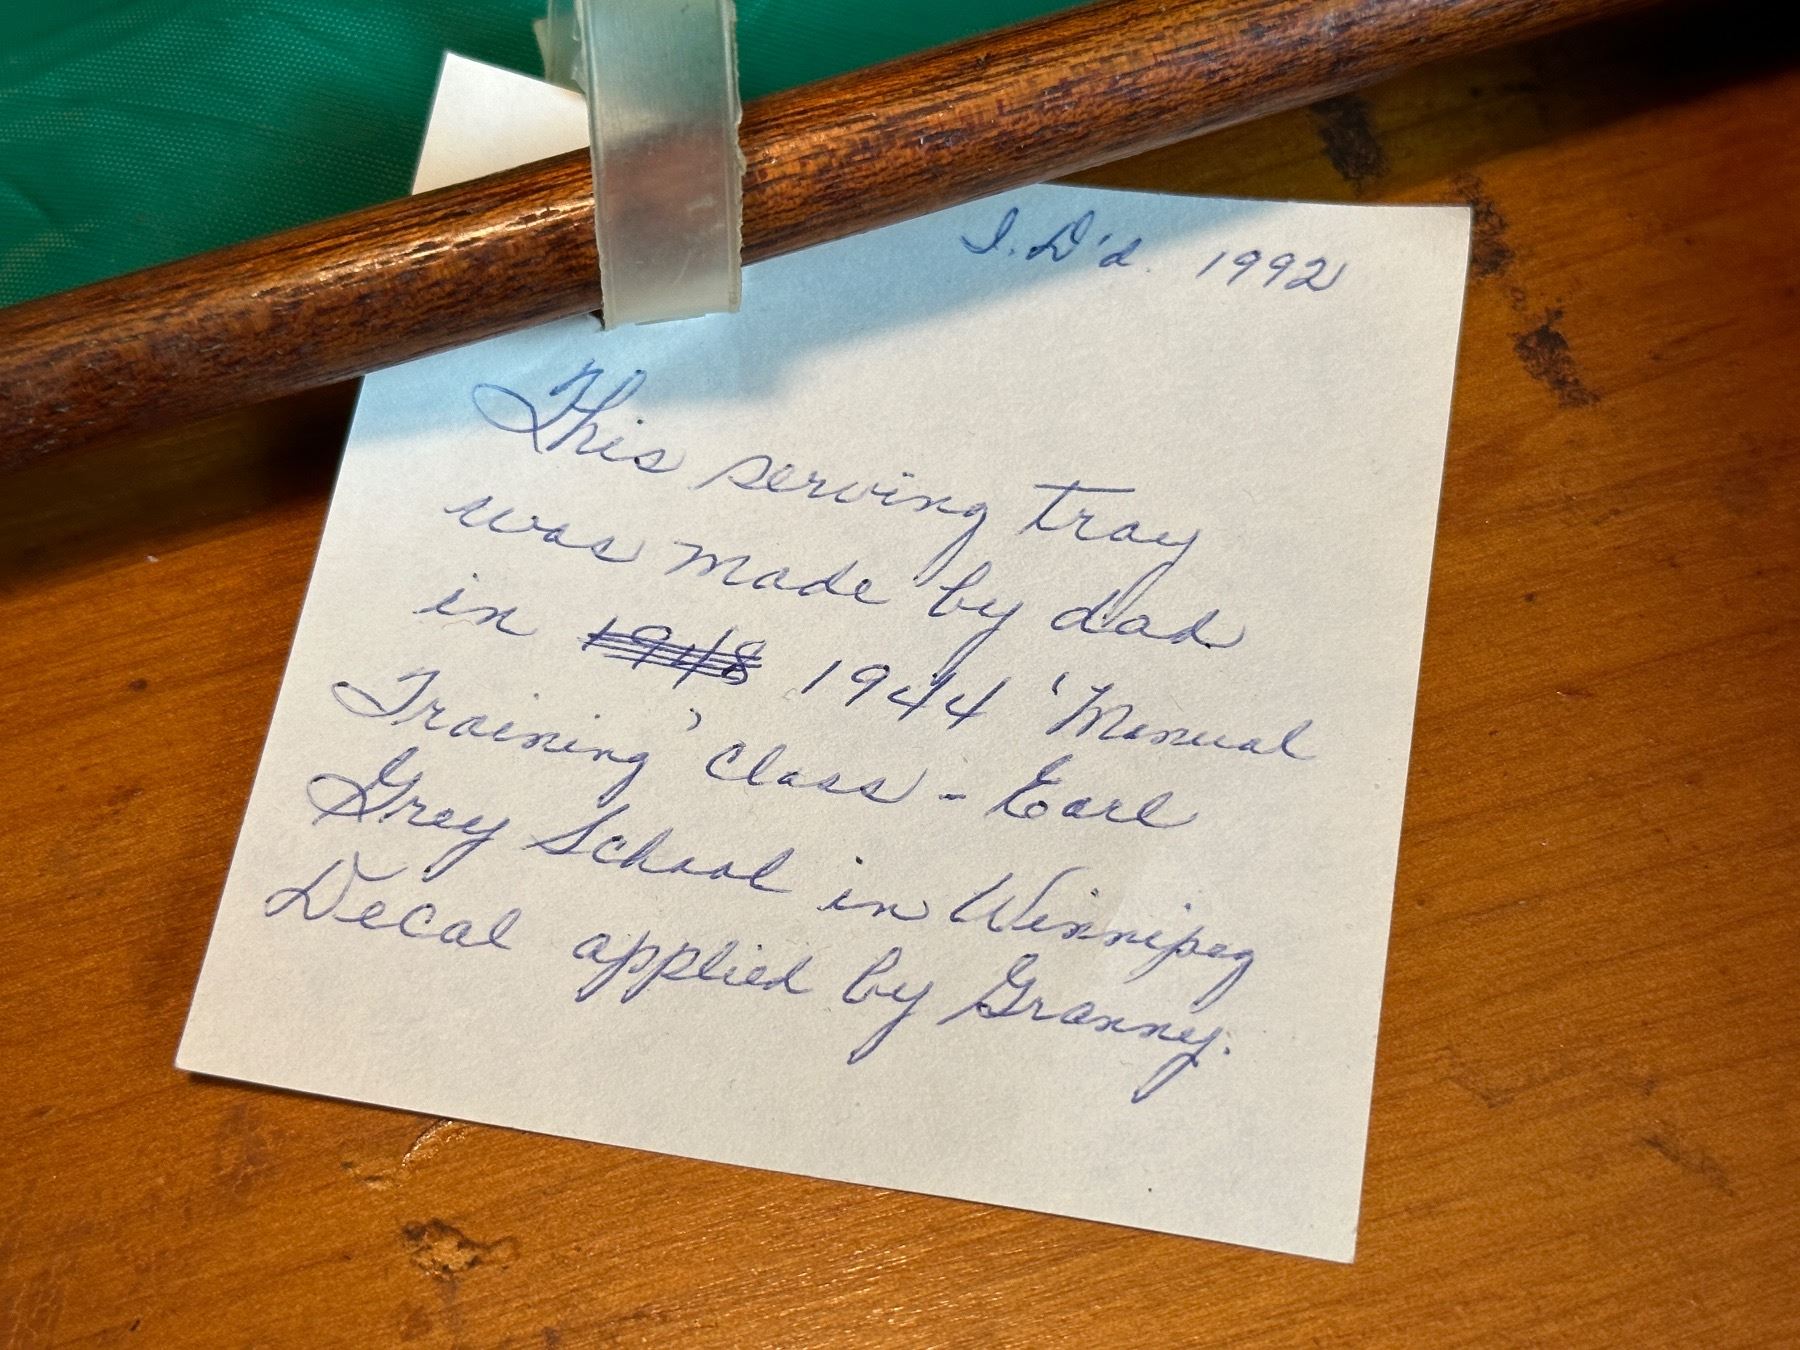 I.D'd. 1992
This serving tray
was made by dad
in 1948 1944 'Manual
Training' class - Earl
Grey School in Winnipeg
Decal applied by Granny.